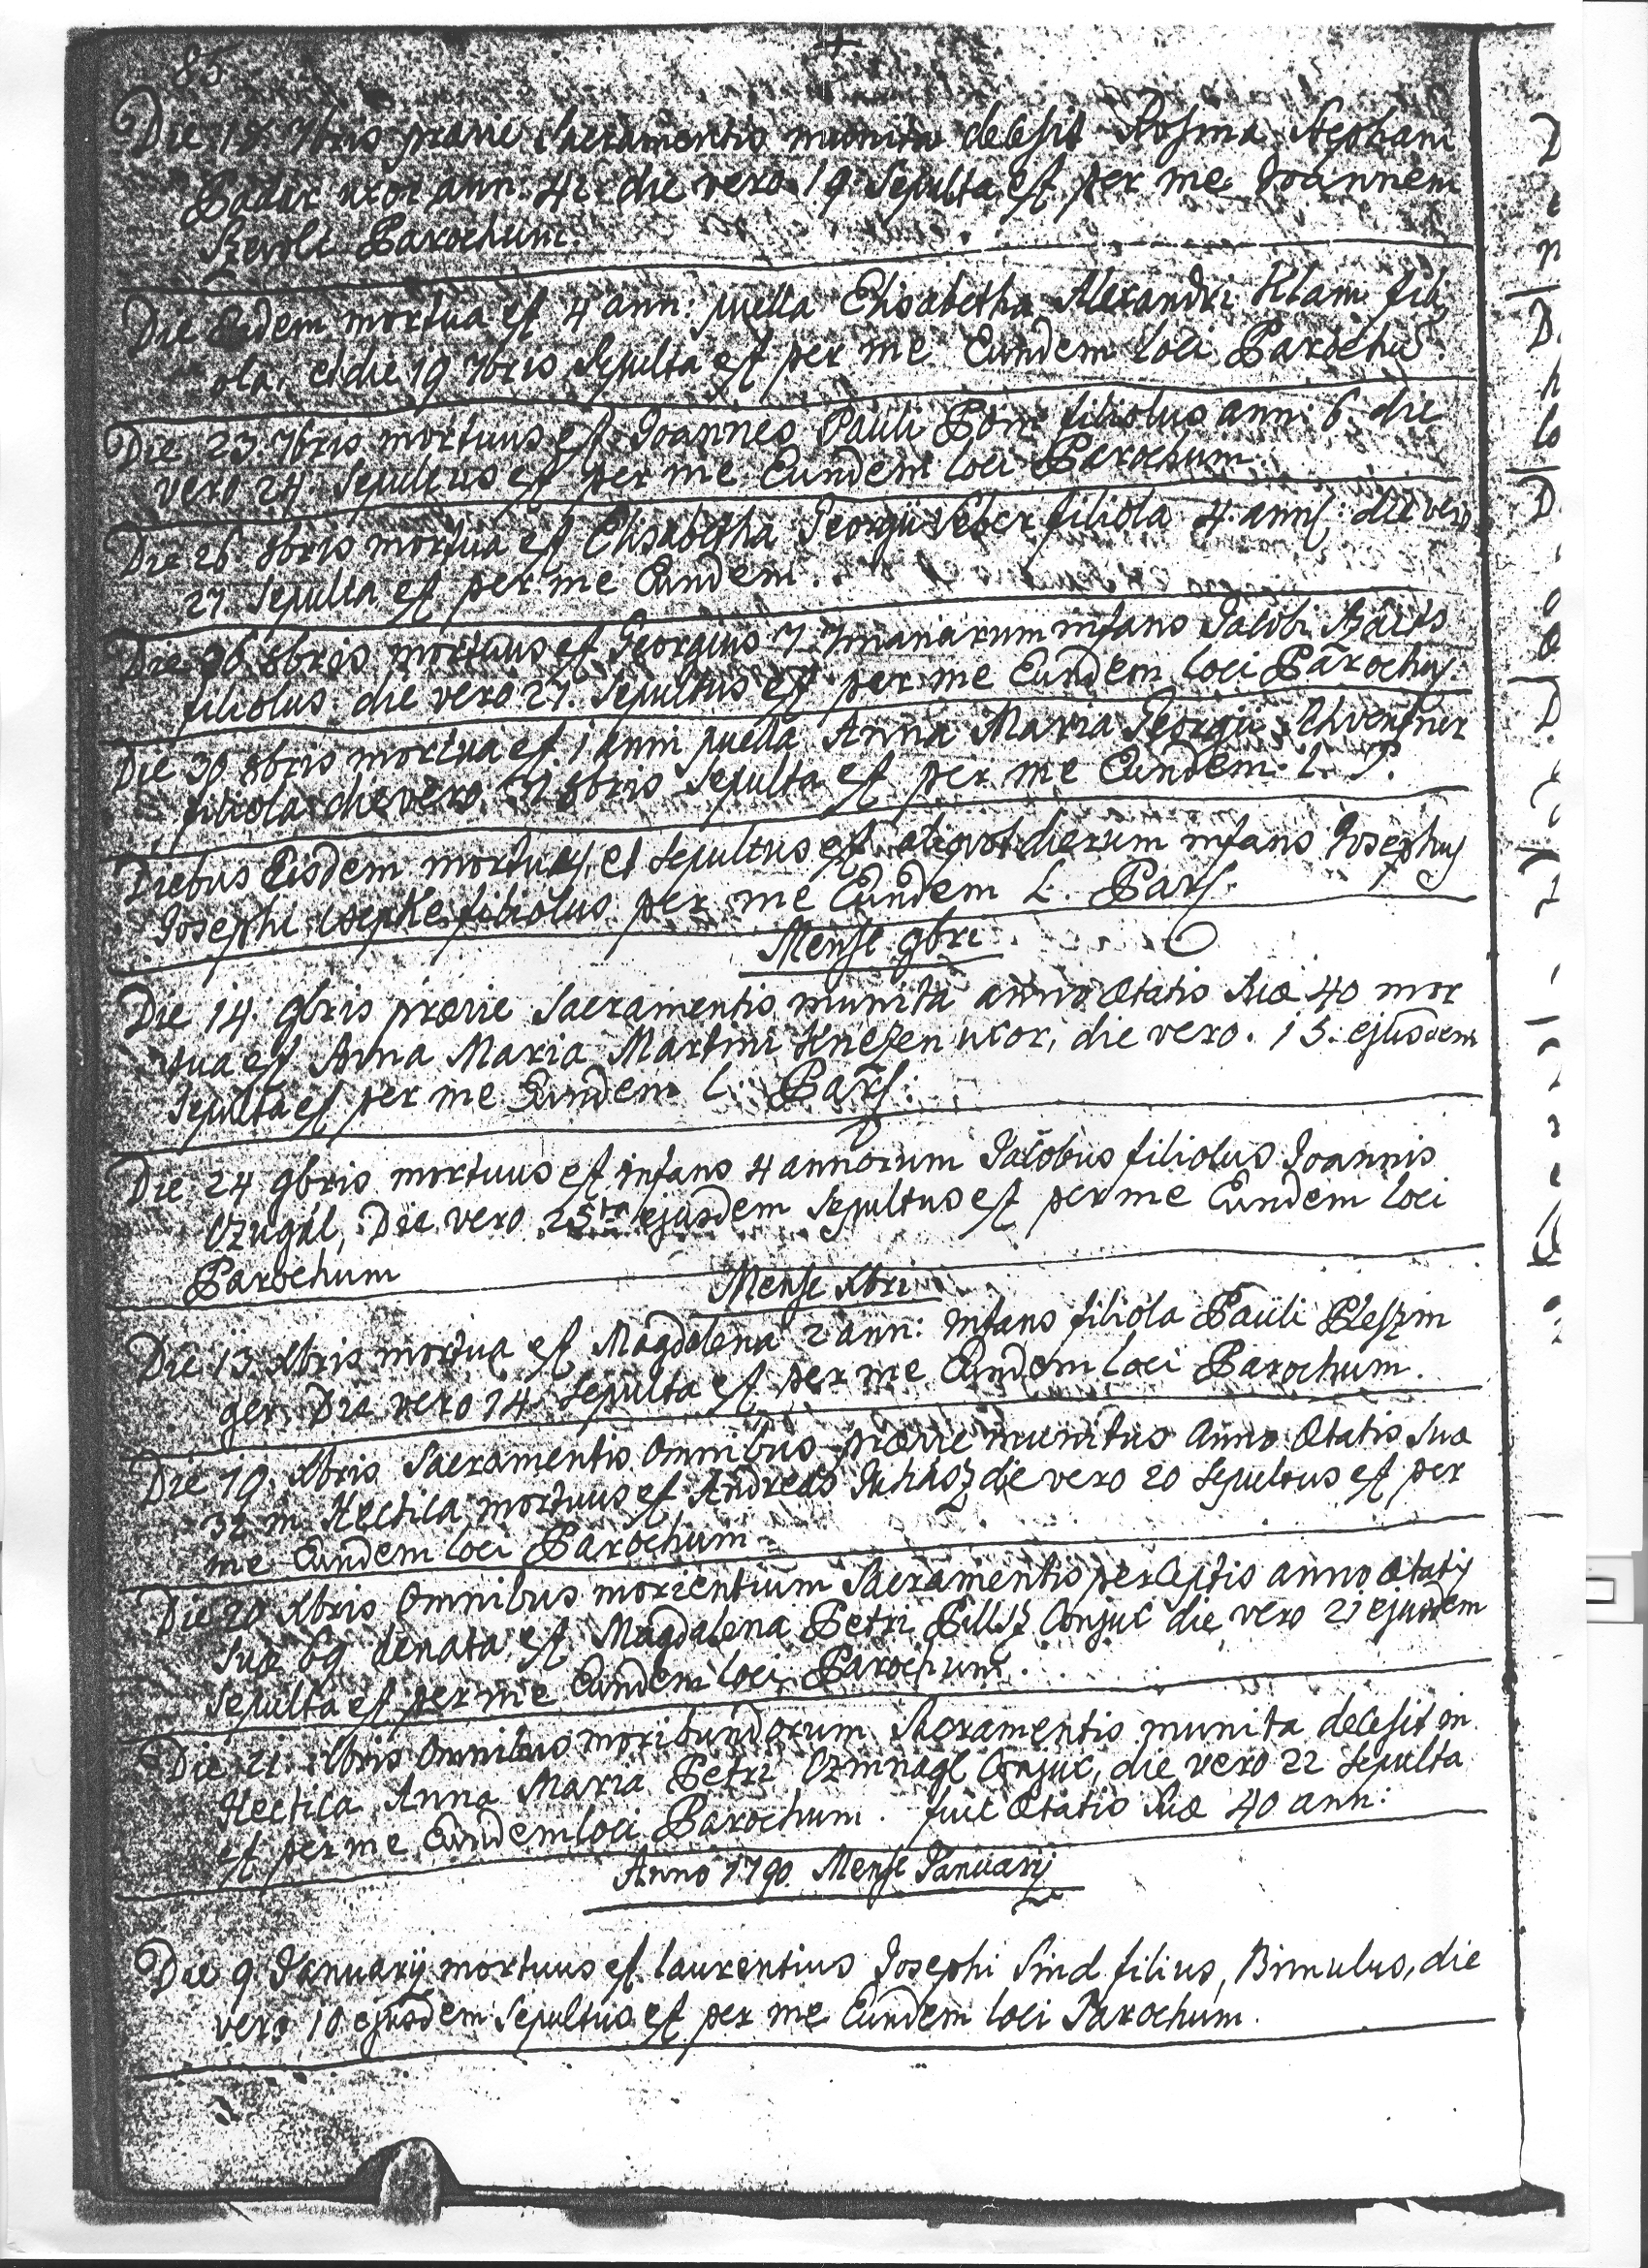 85
Die 18. 7bris prævie Sacramentis munita decesit Rosina Stephani
Padar uxor ann. 42. die vero 19 Sepulta est per me Joannem
Parochum.
Die Eadem mortua est 4 ann: puella Elisabetha Alexandri Klam fili
ola. et die 19 7bris Sepulta est per me Eundem loci Parochu
Die 23. 7bris mortuus est Joannes Pauli filiolus ann: 6. die
vero 24. Sepultus est per me Eundem loci Parochum.
Die 26 8bris mortua est Elisabetha Georgii filiola 4. annj: die vero
27. Sepulta est per me Eundem.
Die 26 8bris mortuus est Georgius 7. 7manarum infans Jacobi
filiolus. die vero 27. Sepultus est per me Eundem loci Parochus.
Die 30 8bris mortua est 1 anni puella Anna Maria Georgii
filiola die vero 31 8bris Sepulta est per me Eundem. L. P.
Diebus Eisdem mortuus et sepultus est aliquot dierum infans Josephus
Josephi filiolus per me Eundem L. Par.
Mense 9bri
Die 14. 9bris prævie Sacramentis munita anno ætatis suæ 40 mor
tua est Anna Maria Martini Knezen uxor, die vero. 15. ejusdem
Sepulta est per me Eundem l. Par:
Die 24 9bris mortuus est infans 4 annorum Jacobus filiolus Joannis
Czugál, Die vero 25ta ejusdem Sepultus est per me Eundem loci
Parochum
Mense Xbri
Die 13. Xbris mortua est Magdalena 2 ann: infans filiola Pauli Pleszin
ger. Die vero 14. Sepulta est per me Eundem loci Parochum.
Die 19. Xbris Sacramentis Omnibus prævie munitus Anno ætatis suæ
32 in Hectica mortuus est Andreas Juhász die vero 20 Sepultus est per
me Eundem loci Parochum
Die 20 Xbris Omnibus morientium Sacramentis perceptis anno ætatis
suæ 69 denata est Magdalena Petri Conjux die vero 21 ejusdem
Sepulta est per me Eundem loci Parochum.
Die 21. Xbris Omnibus moribundorum Sacramentis munita decesit in
Hectica Anna Maria Petri Czinnagl Conjux, die vero 22 Sepulta
est per me Eundem loci Parochum. fuit ætatis suæ 40 ann:
Anno 1790. Mense Januarij
Die 9. Januarij mortuus est laurentius Josephi Sind filius, Bimulus, die
vero 10 ejusdem Sepultus est per me Eundem loci Parochum.